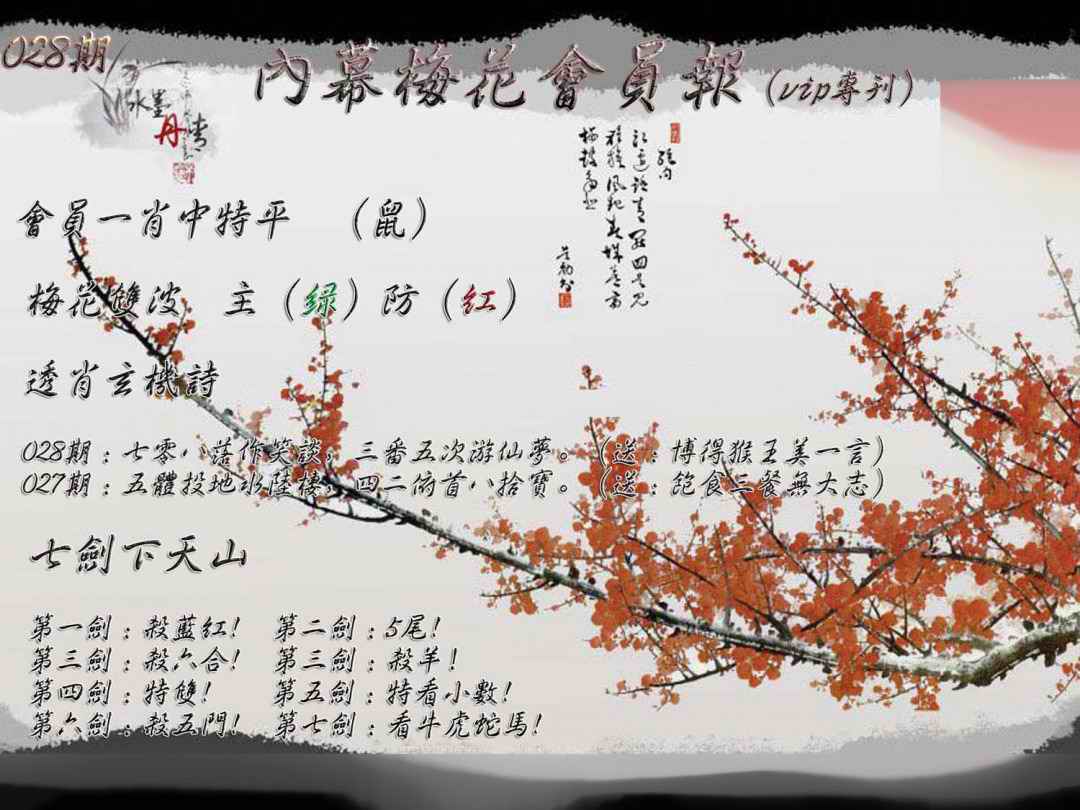 028期
內幕梅花會員報(vip專刊)
水墨
丹青
會員一肖中特平 （鼠）
梅花雙波 主（绿）防（红）
透肖玄機詩
028期：七零八落作笑談，三番五次游仙夢。（送：博得猴王美一言）
027期：五體投地水陸樓，四二俯首八拾寶。（送：飽食三餐無大志）
七劍下天山
第一劍：殺藍紅! 第二劍：5尾!
第三劍：殺六合! 第三劍：殺羊!
第四劍：特雙! 第五劍：特看小數!
第六劍：殺五門! 第七劍：看牛虎蛇馬!